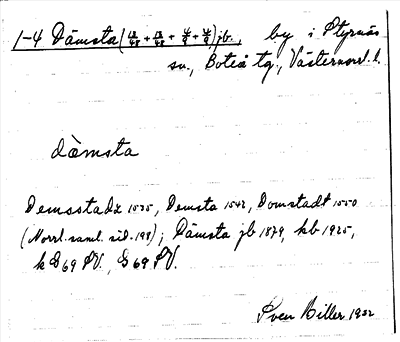 1-4 Dämsta jb., by i Styrnäs
sn., Boteå tg., Västernorrl. l.
dàmsta
Demsstadz 1535, Demsta 1542, Domstadt 1550
(Norrl. saml. sid. 198); Dämsta jb 1879, kb 1925,
k G 69 SV., G 69 SV.
Sven Biller 1932